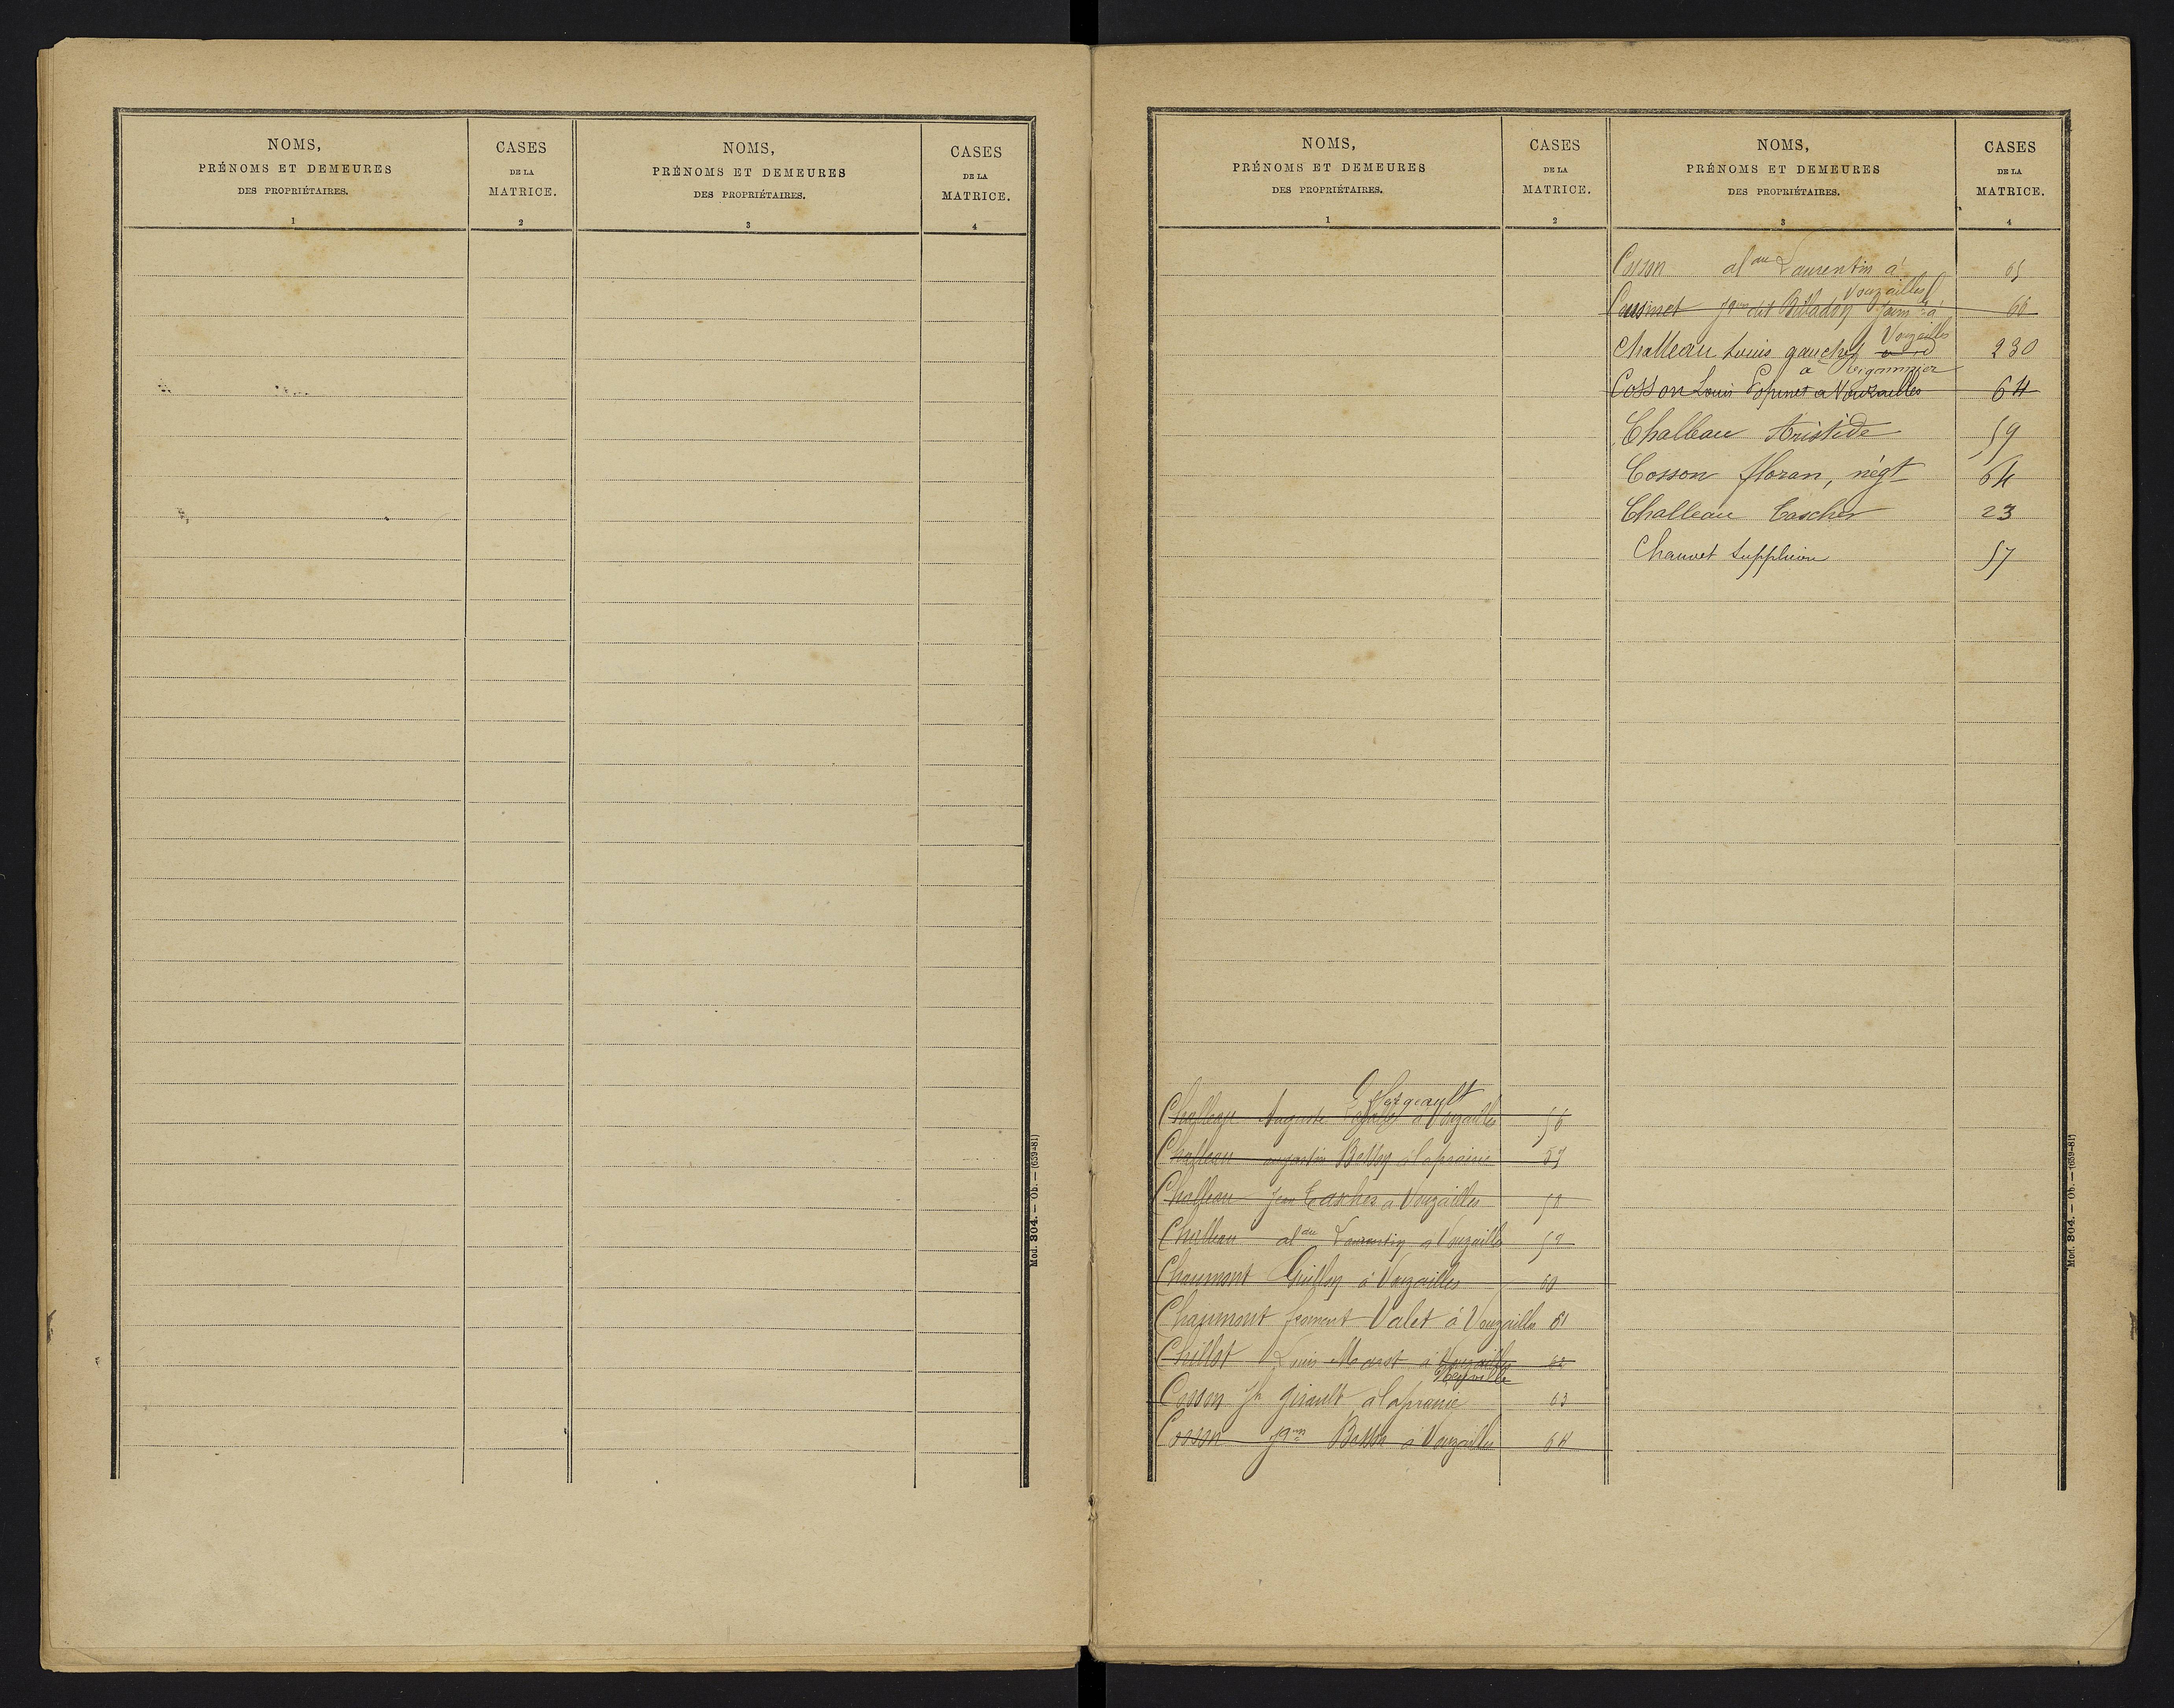 NOMS,
PRÉNOMS ET DEMEURES
DES PROPRIÉTAIRES.
1
CASES
DE LA
MATRICE.
2
NOMS,
PRÉNOMS ET DEMEURES
DES PROPRIÉTAIRES.
3
CASES
DE LA
MATRICE.
4
Mod. 304. — Ob. — (639-81)
NOMS,
PRÉNOMS ET DEMEURES
DES PROPRIÉTAIRES.
1
CASES
DE LA
MATRICE.
2
Challeau Auguste à Vouzailles 56
Challeau augustin à laprairie 57
Challeau Jean Cascher à Vouzailles 58
Challeau al^dre Laurentin à Vouzailles 59
Chaumont Guillon à Vouzailles 60
Chaumont froment Valet à Vouzailles 61
Chillot Louis Marot à Vouzailles 62
Cosson J^h girault à laprairie 63
Cosson à Vouzailles 64
NOMS,
PRÉNOMS ET DEMEURES
DES PROPRIÉTAIRES.
3
CASES
DE LA
MATRICE.
4
Cosson al^dre Laurentin à 65
Vouzailles
Cousinet dit à 66
Vouzailles
Challeau Louis gaucher 230
à
Cosson Louis à Vouzailles 64
Challeau Aristide 59
Cosson floran, négt 64
Challeau Cascher 23
Chauvet 57
Mod. 304. — Ob. — (639-81)